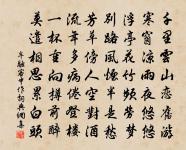 千里雲山戀舊遊
寒窗涼雨夜悠悠
浮亭花竹頻勞夢
別路風煙半是愁
芳草傍人空對酒
流年多病倦登樓
一杯重向樽前醉
莫遣相思累白頭
牟融客中作詞典網集